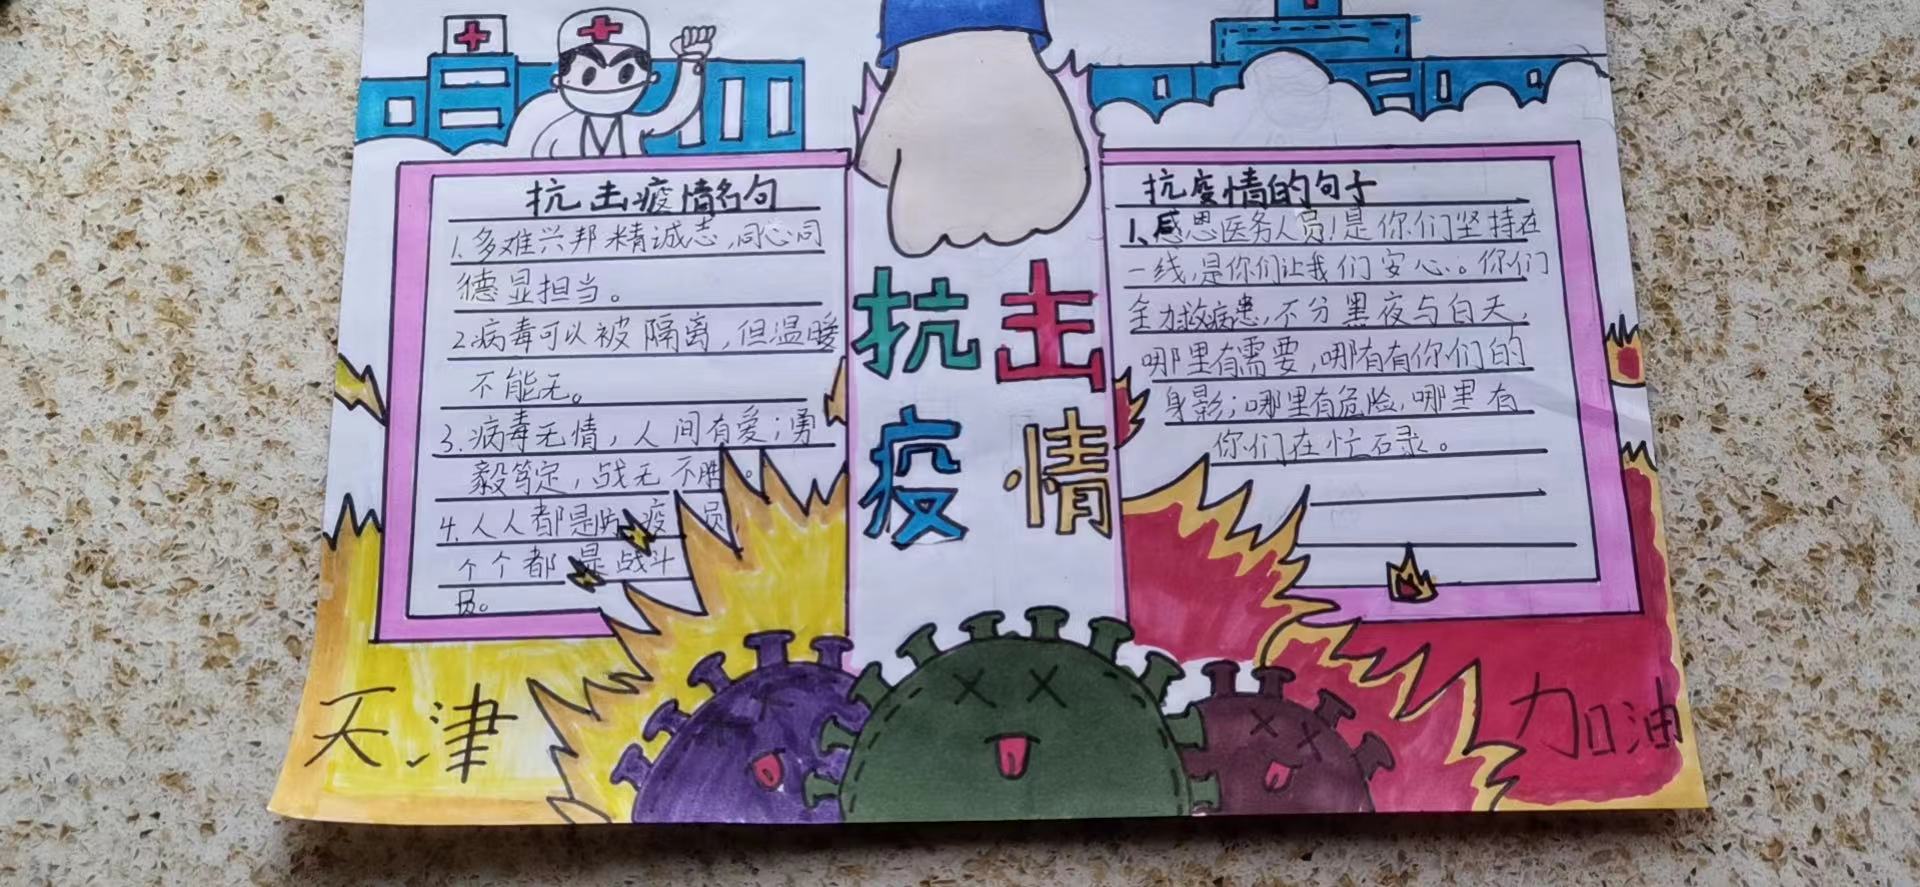 抗击疫情名句
1.多难兴邦精诚志,同心同
德显担当。
2.病毒可以被隔离,但温暖
不能无。
3.病毒无情,人间有爱;勇
毅笃定,战无不胜。
4.人人都是防疫员
个个都是战斗
员。
抗击
疫情
抗疫情的句子
1、感恩医务人员!是你们坚持在
一线,是你们让我们安心。你们
全力救病患,不分黑夜与白天,
哪里有需要,哪有有你们的
身影;哪里有危险,哪里有
你们在忙碌。
天津
加油